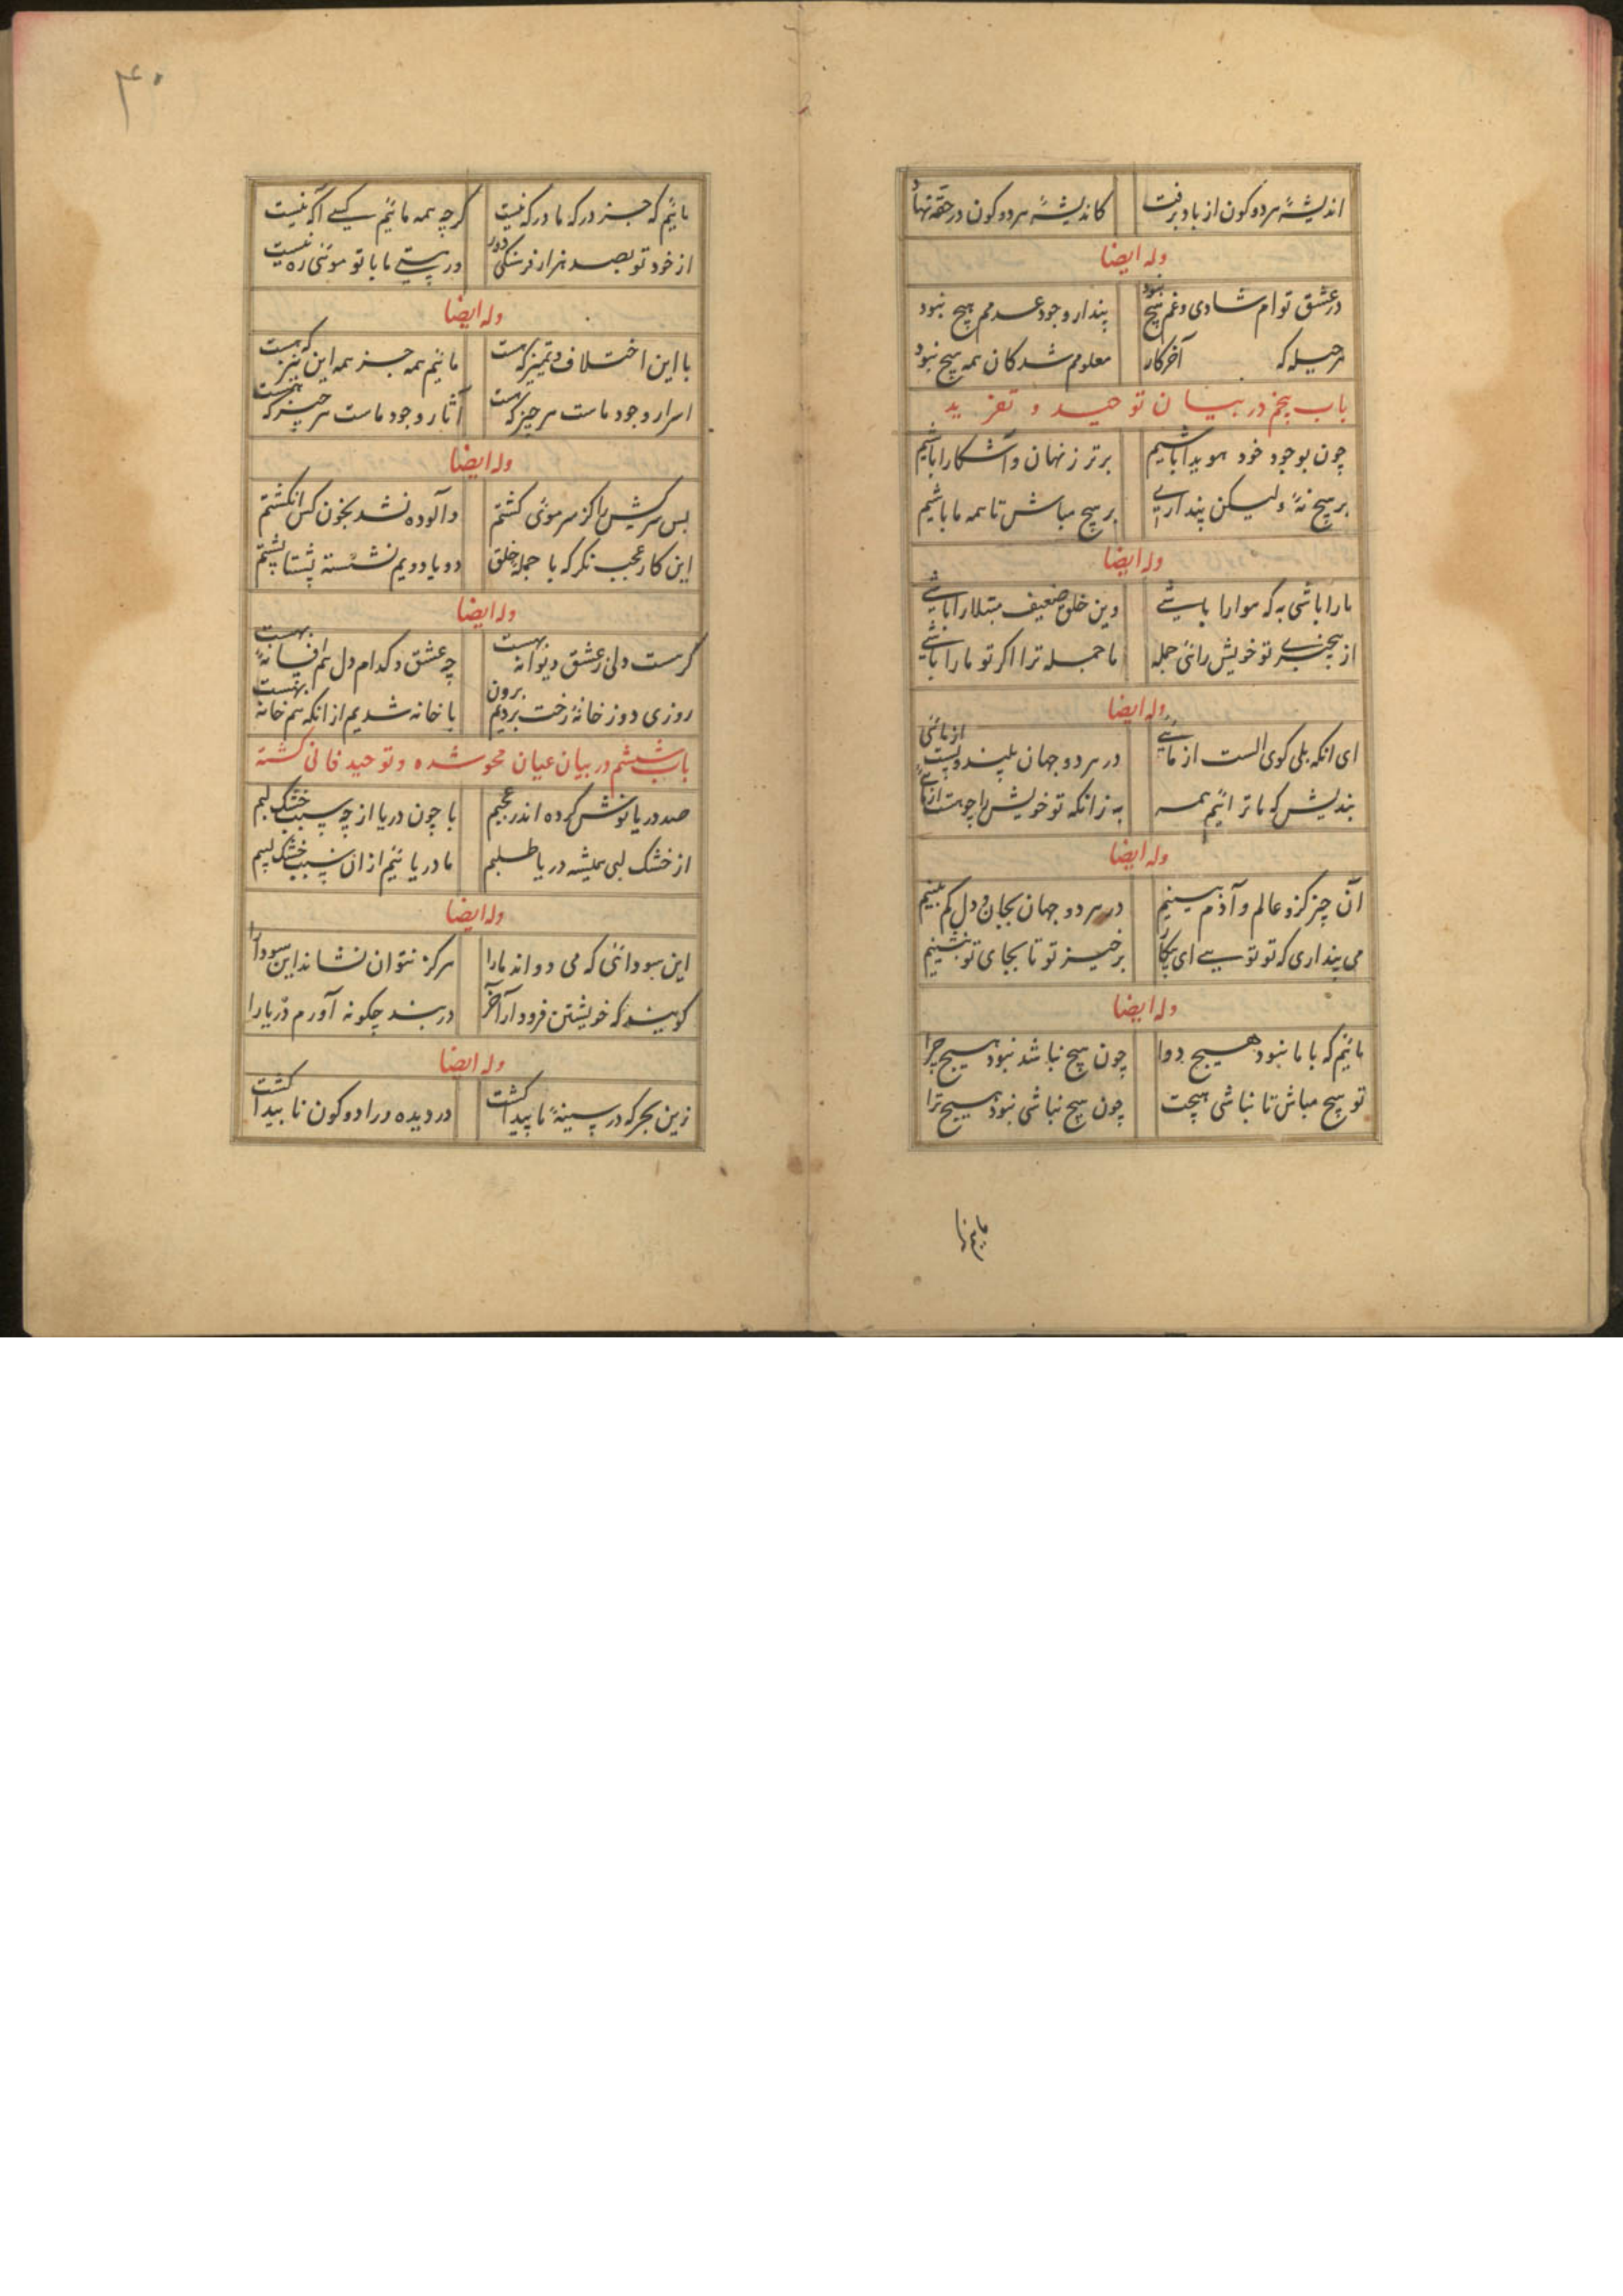 اندیشهٔ هر دو کون از یاد برفت
کاندیشهٔ هر دو کون در حقه نهاد
وله ایضا
در عشق توام شادی و غم هیچ نبود
پندار وجود عدمم هیچ نبود
هر حیله که آخر کار
معلومم شد کان همه هیچ نبود
باب پنجم در بیان توحید و تفرید
چون بوجود خود هویدا باشیم
برتر ز نهان و آشکارا باشیم
بر هیچ نهٔ ولیکن پنداری
بر هیچ مباش تا همه ما باشیم
وله ایضا
ما را باشی به که هوا را باشی
وین خلق ضعیف مبتلا را باشی
از بیخبری تو خویش رائی جمله
ما جمله ترا اکر تو ما را باشی
وله ایضا
ای انکه بلی کوی الست از مائی
در هر دو جهان بلند و پست از مائی
بندیش که ما ترائیم همه
به زانکه تو خویش را چو هست از مائی
وله ایضا
آن چیز کزو عالم و آدم بینیم
در هر دو جهان بجان و دل کم بینیم
می پنداری که تو توسے ای یکتا
برخیز تو تا بجای تو بنشینیم
وله ایضا
مائیم که با ما نبود هیچ دوا
چون هیچ نباشد نبود هیچ چرا
تو هیچ مباش تا نباشی هیچت
چون هیچ نباشی نبود هیچ ترا
۴۰
مائیم که جز درکه ما درکه نیست
کرچه همه مائیم کسے آکه نیست
از خود تو بصد هزار فرسنکی دور
در هستے ما با تو موئی ره نیست
وله ایضا
با این اختلاف و تمیز که هست
مائیم همه جز همه این نیز که هست
اسرار وجود ماست هر چیز که هست
آثار وجود ماست هر چیز که هست
وله ایضا
بس سرکش را کز سر موئی کشتم
وآلوده نشد بخون کس انکشتم
این کار عجب نکر که با جمله خلق
رو با رویم نشسته پشتا پشتم
وله ایضا
کر هست دلی ز عشق دیوانه بهست
چه عشق و کدام دل هم افسانه بهست
روزی دو ز خانهٔ رخت بردیم برون
با خانه شدیم از انکه هم خانه بهست
باب ششم در بیان عیان محو شده و توحید فانی کشته
صد دریا نوش کرده اندر عجبیم
با چون دریا از چه سبب خشک لبیم
از خشک لبی همیشه دریا طلبیم
ما دریائیم از ان سبب خشک لبیم
وله ایضا
این سودائی که می دواند ما را
هرکز نتوان نشاند این سودا را
کویند که خویشتن فرود آر آخر
در بند چکونه آورم دریا را
وله ایضا
زین بحر که در سینهٔ ما پیدا کشت
در دیده ورا دو کون نا پیدا کشت